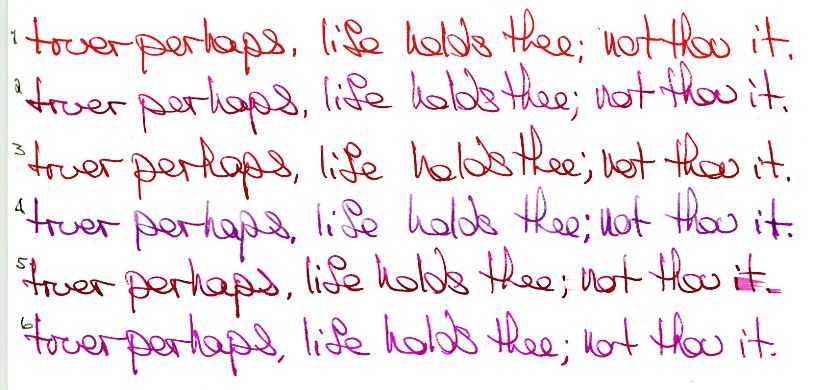 1 truer perhaps, life holds thee; not thou it.
2 truer perhaps, life holds thee; not thou it.
3 truer perhaps, life holds thee; not thou it.
4 truer perhaps, life holds thee; not thou it.
5 truer perhaps, life holds thee; not thou it.
6 truer perhaps, life holds thee; not thou it.